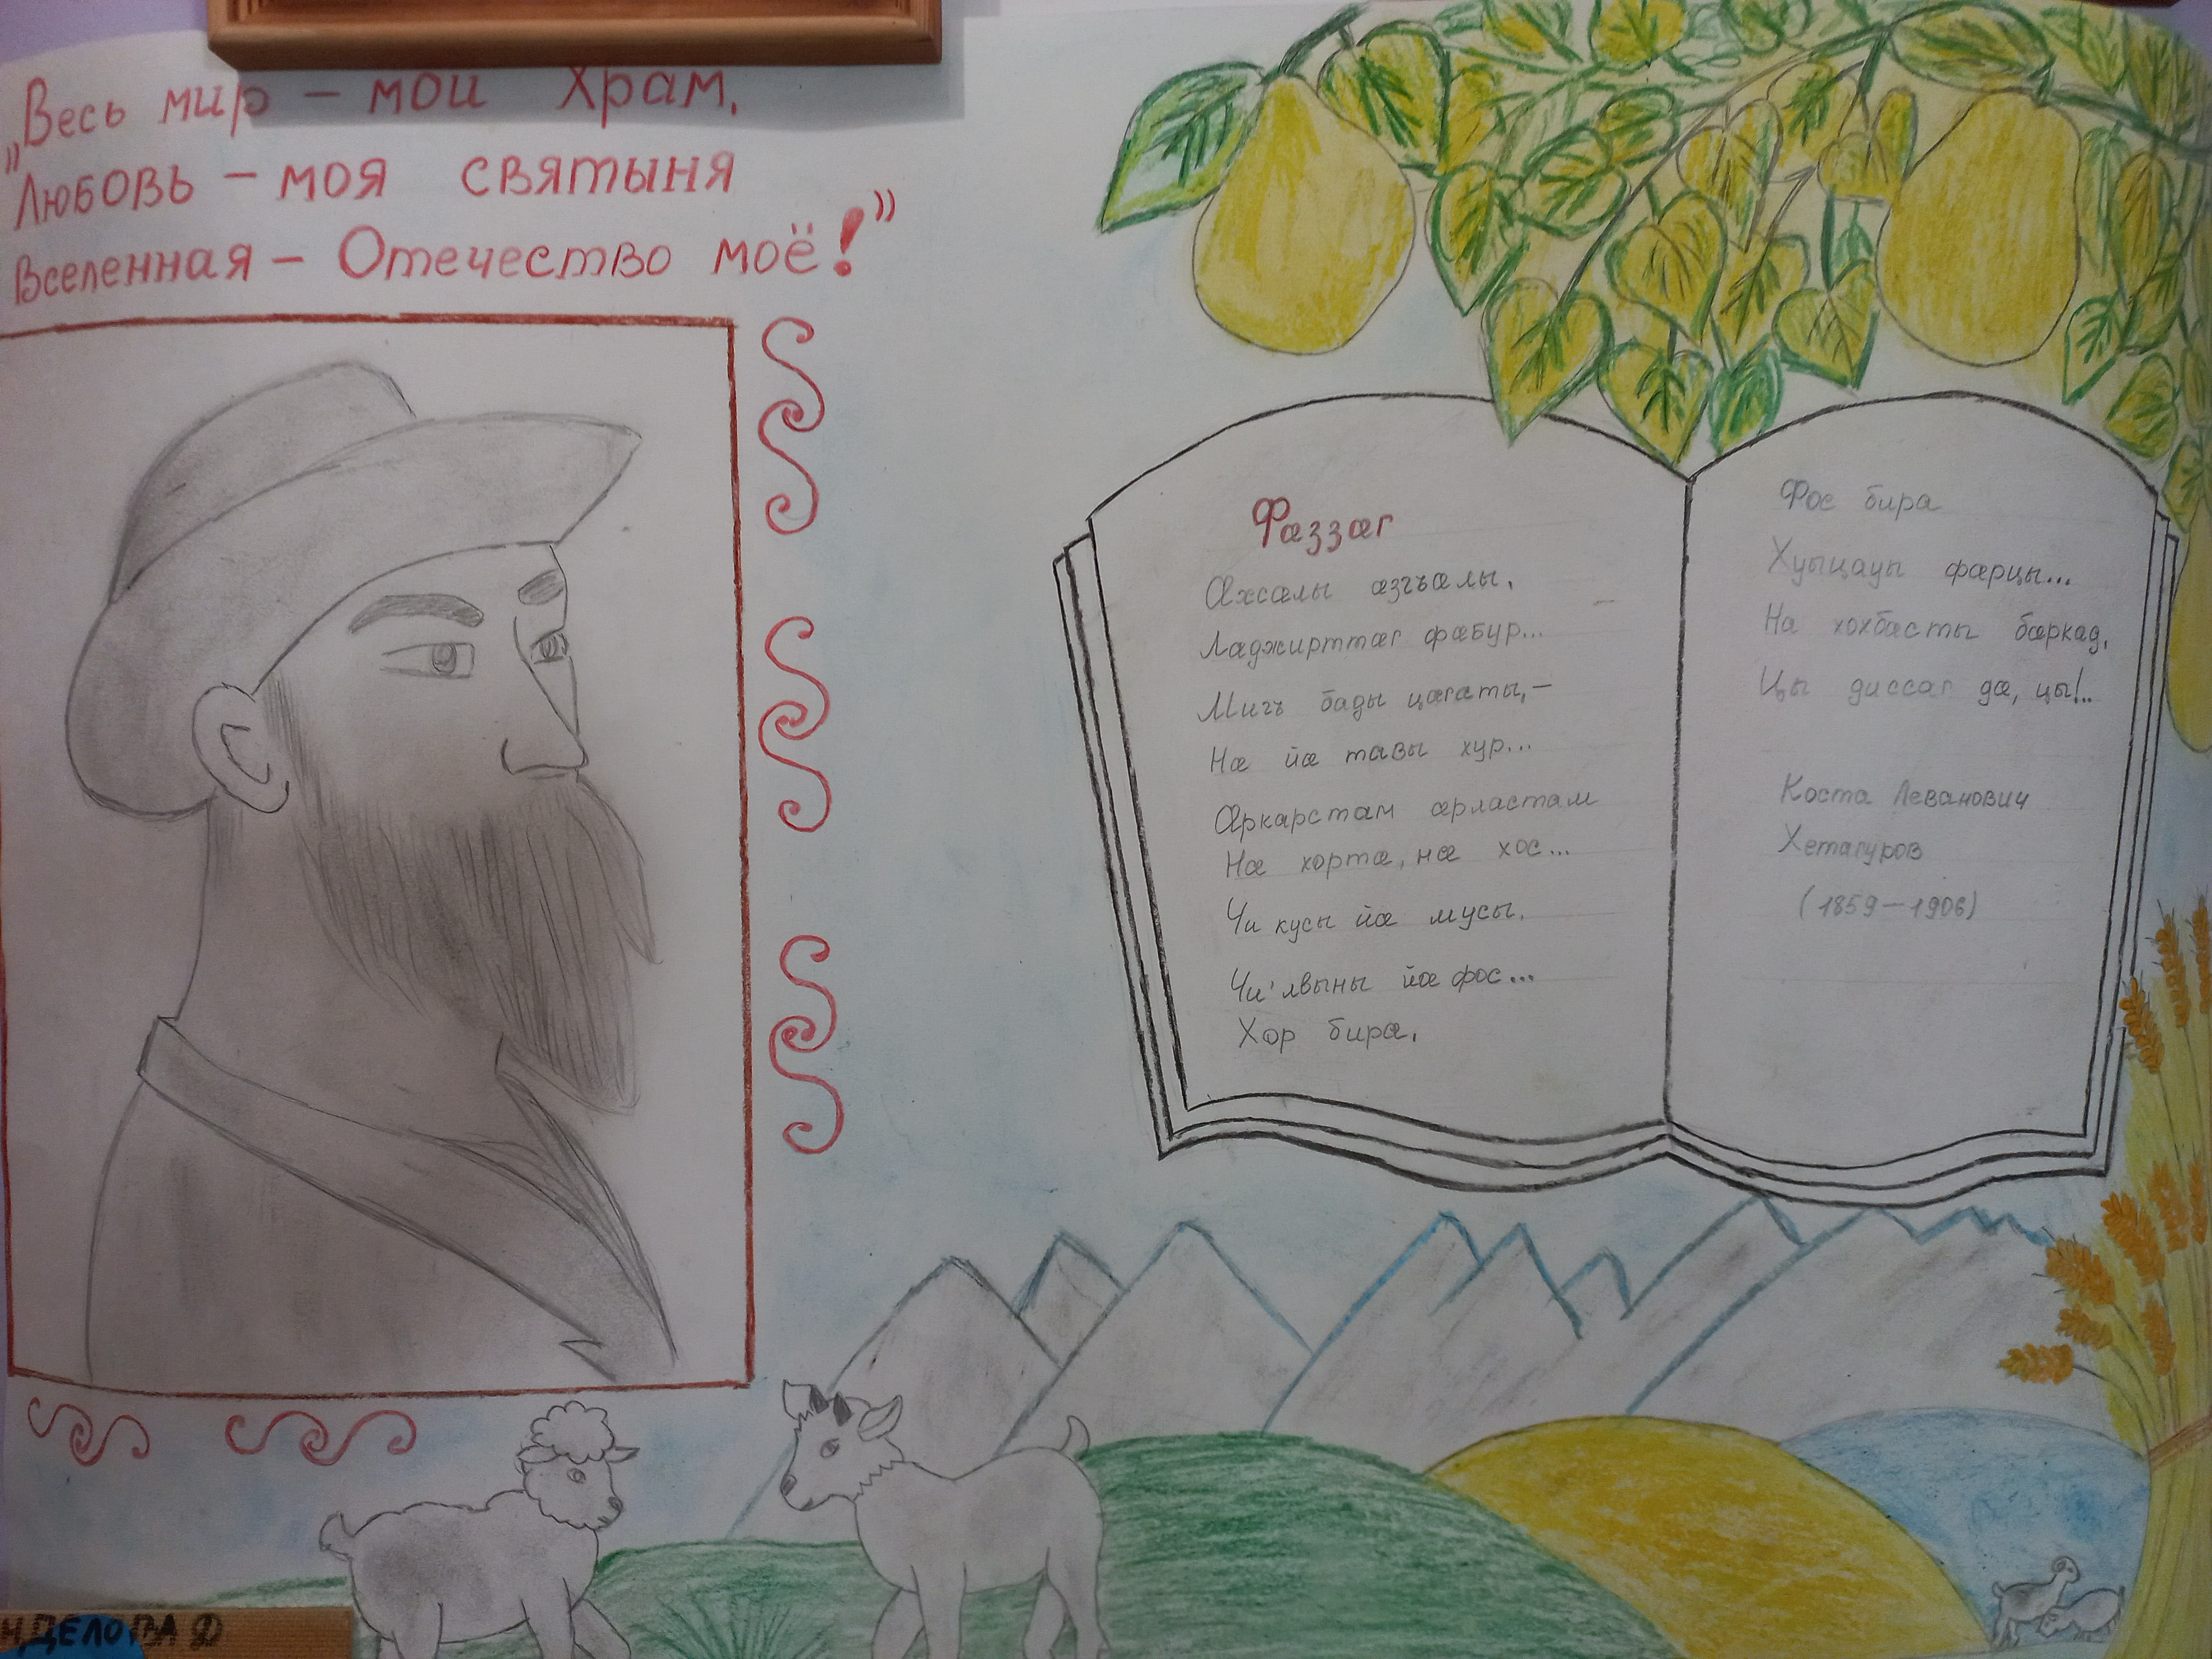 „Весь мир – мой Храм,
Любовь – моя святыня
Вселенная – Отечество моё!”
Фæззæг
Æхсæлы æзгъæлы,
Лæджирттæг фæбур...
Мигъ бады цæгаты,–
Нæ йæ тавы хур...
Æркарстам æрластам
Нæ хортæ, нæ хос...
Чи кусы йæ мусы,
Чи'лвыны йæ фос...
Хор бирæ,
Фос бирæ
Хуыцауы фæрцы...
Нæ хохбæсты бæркад,
Цы диссаг дæ, цы!..
Коста Леванович
Хетагуров
(1859–1906)